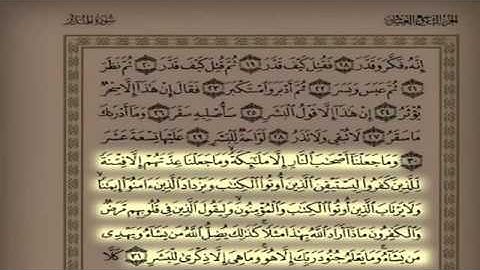 الجزء التاسع والعشرون
سورة المدثر
إِنَّهُ فَكَّرَ وَقَدَّرَ ١٨ فَقُتِلَ كَيْفَ قَدَّرَ ١٩ ثُمَّ قُتِلَ كَيْفَ قَدَّرَ ٢٠ ثُمَّ نَظَرَ
٢١ ثُمَّ عَبَسَ وَبَسَرَ ٢٢ ثُمَّ أَدْبَرَ وَاسْتَكْبَرَ ٢٣ فَقَالَ إِنْ هَٰذَا إِلَّا سِحْرٌ
يُؤْثَرُ ٢٤ إِنْ هَٰذَا إِلَّا قَوْلُ الْبَشَرِ ٢٥ سَأُصْلِيهِ سَقَرَ ٢٦ وَمَا أَدْرَاكَ
مَا سَقَرُ ٢٧ لَا تُبْقِي وَلَا تَذَرُ ٢٨ لَوَّاحَةٌ لِّلْبَشَرِ ٢٩ عَلَيْهَا تِسْعَةَ عَشَرَ
٣٠ وَمَا جَعَلْنَا أَصْحَابَ النَّارِ إِلَّا مَلَائِكَةً وَمَا جَعَلْنَا عِدَّتَهُمْ إِلَّا فِتْنَةً
لِّلَّذِينَ كَفَرُوا لِيَسْتَيْقِنَ الَّذِينَ أُوتُوا الْكِتَابَ وَيَزْدَادَ الَّذِينَ آمَنُوا إِيمَانًا
وَلَا يَرْتَابَ الَّذِينَ أُوتُوا الْكِتَابَ وَالْمُؤْمِنُونَ وَلِيَقُولَ الَّذِينَ فِي قُلُوبِهِم مَّرَضٌ
وَالْكَافِرُونَ مَاذَا أَرَادَ اللَّهُ بِهَٰذَا مَثَلًا كَذَٰلِكَ يُضِلُّ اللَّهُ مَن يَشَاءُ وَيَهْدِي
مَن يَشَاءُ وَمَا يَعْلَمُ جُنُودَ رَبِّكَ إِلَّا هُوَ وَمَا هِيَ إِلَّا ذِكْرَىٰ لِلْبَشَرِ ٣١ كَلَّا